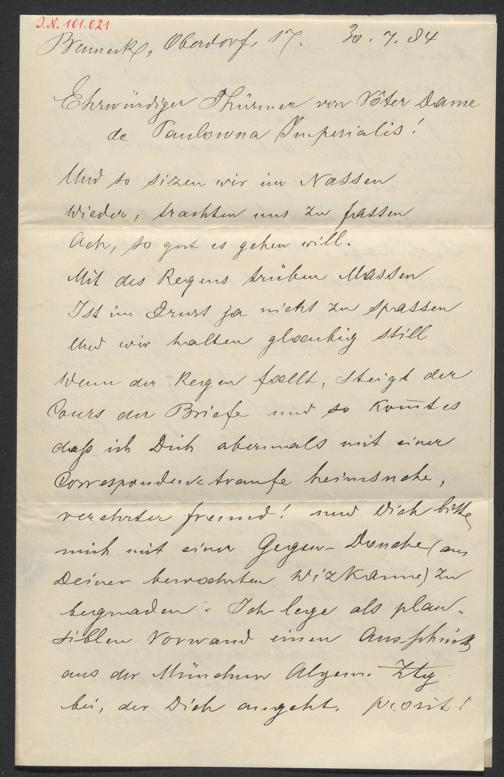 J.N. 101.021
Oberdorf, 17. 30.7.84
Ehrwürdiger Thürmer von Nôter Dame
de Paulowna Imperialis!
Und so sizen wir im Nassen
Wieder, trachten uns zu fassen
Ach, so gut es gehen will.
Mit des Regens trüben Massen
Ist im Ernst ja nicht zu spassen
Und wir halten glaeubig still
Wenn der Regen faellt, steigt der
Cours der Briefe und so kom̄t es
daß ich Dich abermals mit einer
Correspondenztraufe heimsuche,
verehrter Freund! und Dich bitte
mich mit einer Gegen-Douche (aus
Deiner bewaehrten Wizkanne) zu
begnaden. Ich lege als plau-
siblen Vorwand einen
aus der Münchner Algem. Ztg.
bei, der Dich angeht. Prosit!